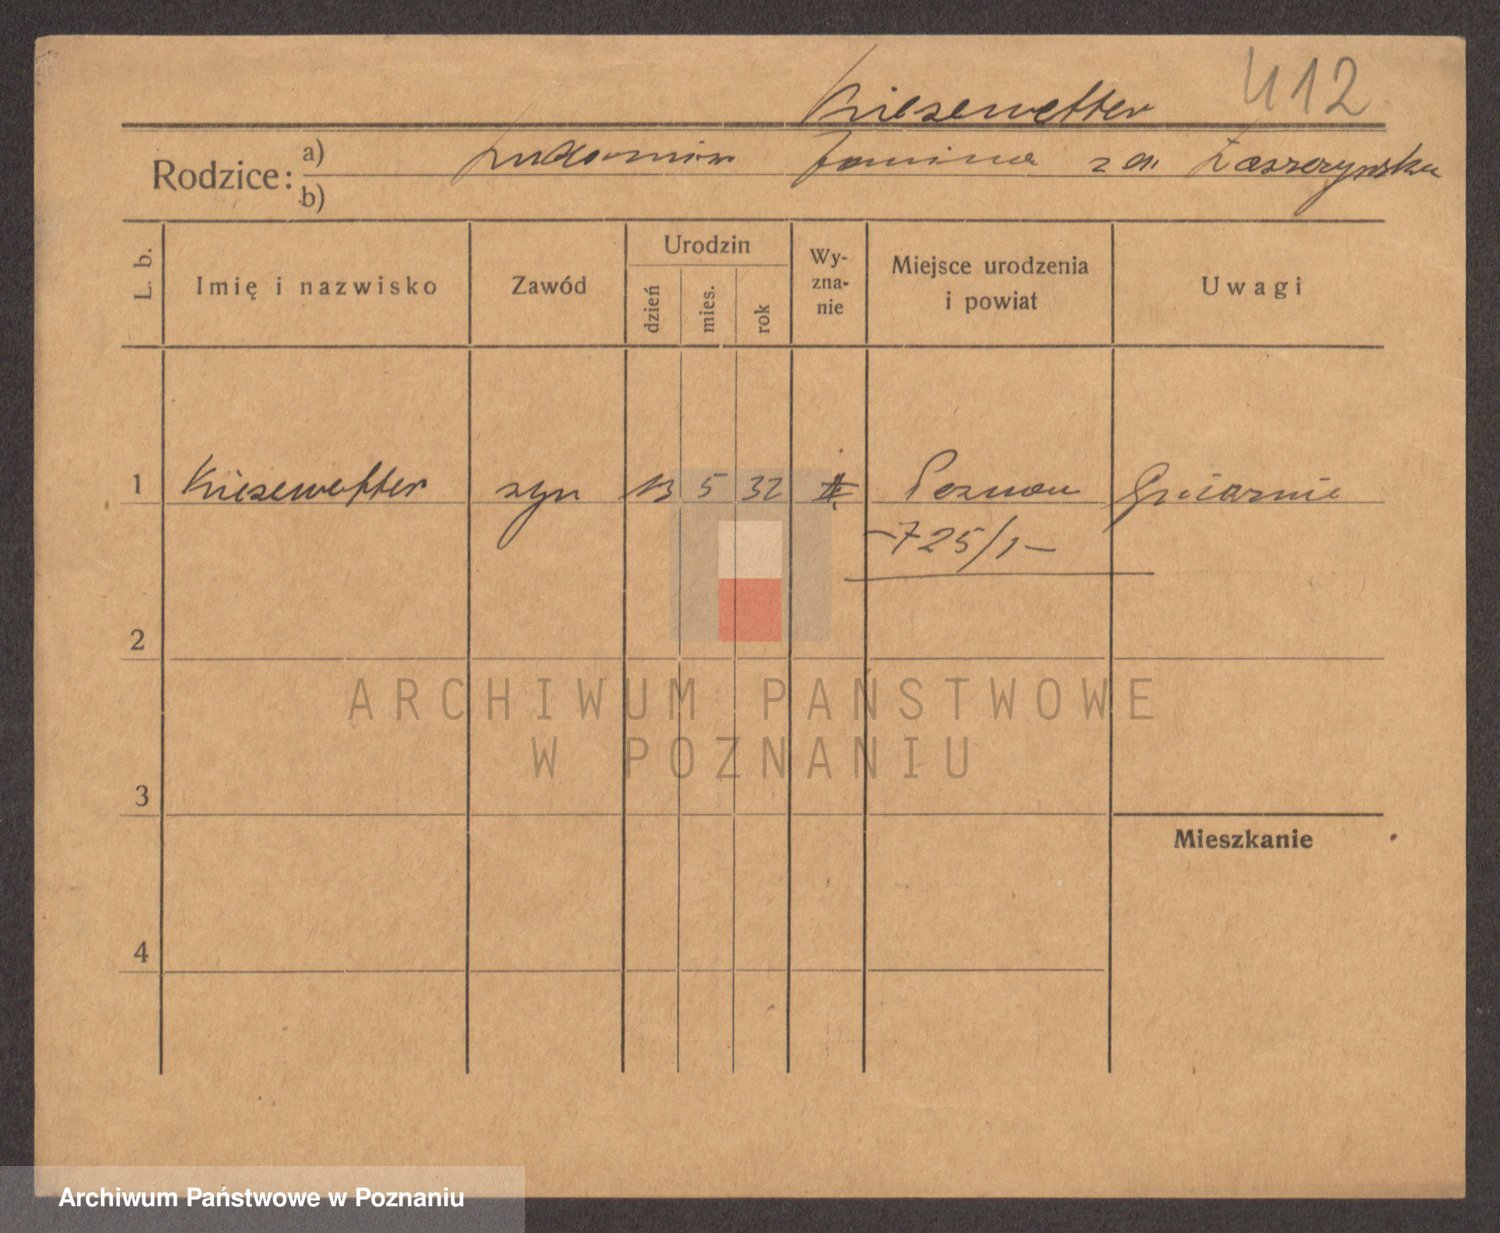 Kiesewetter 412
Rodzice: a) Ludomir Janina z d. Łaszczyńska
b)
L. b. Imię i nazwisko Zawód Urodzin dzień mies. rok Wy-zna-nie Miejsce urodzenia i powiat Uwagi
1 Kiesewetter syn 13 5 32 Poznań
-725/1-
2
ARCHIWUM PAŃSTWOWE
W POZNANIU
3
Mieszkanie
4
Archiwum Państwowe w Poznaniu